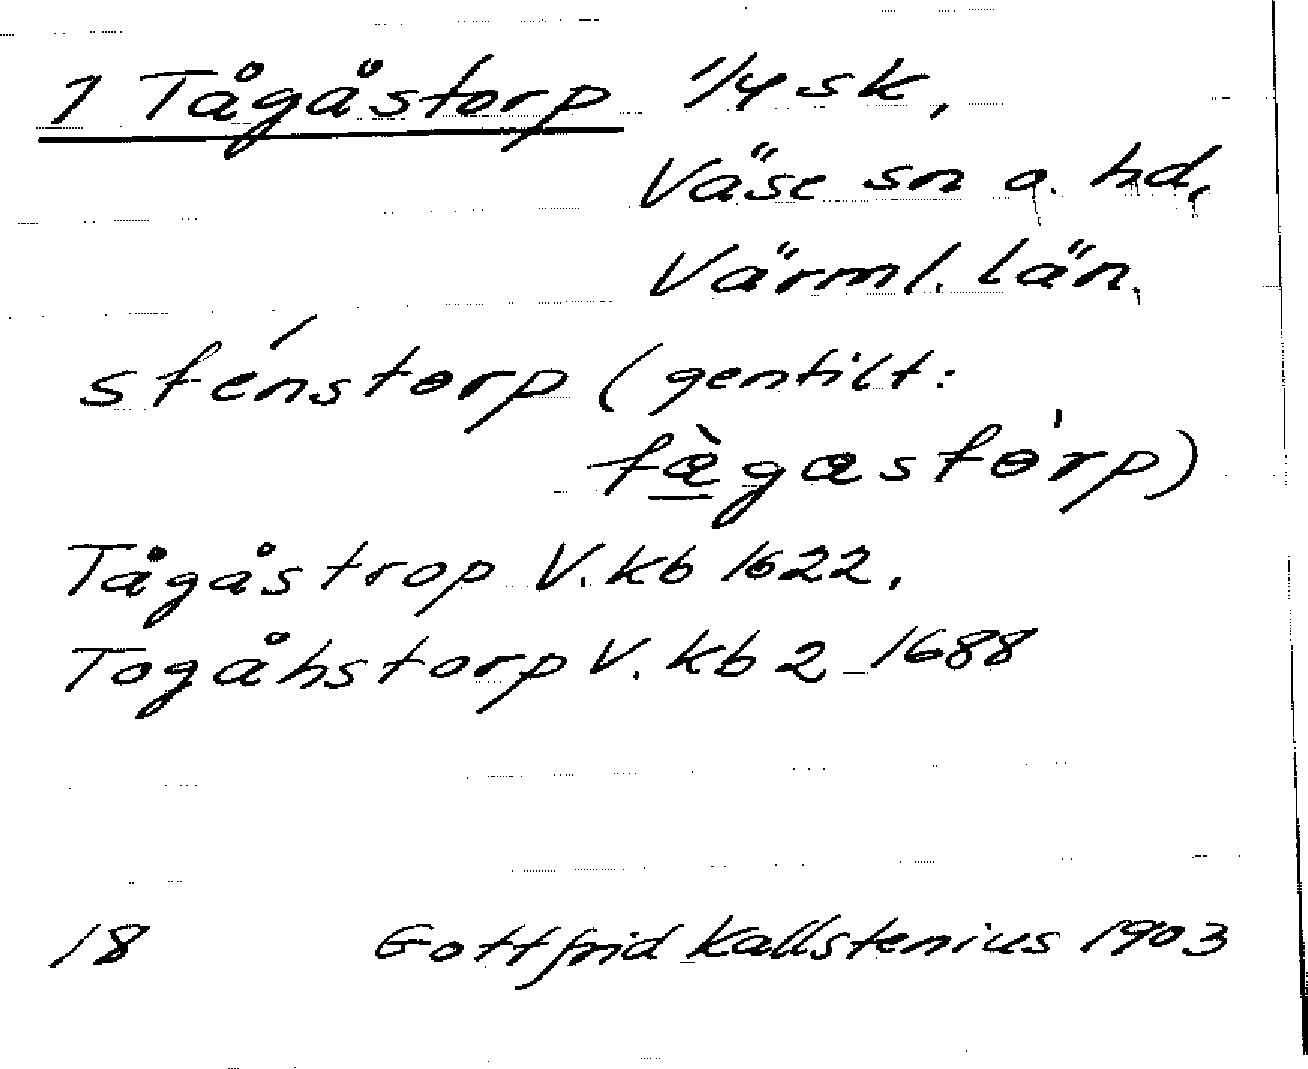 1 Tågåstorp 1/4 sk,
Väse sn o. hd,
Värml. län.
sténstorp (gentilt:
tàgastórp)
Tågåstrop V. kb 1622.
Togåhstorp V. kb 2 1688
18 Gottfrid Kallstenius 1903